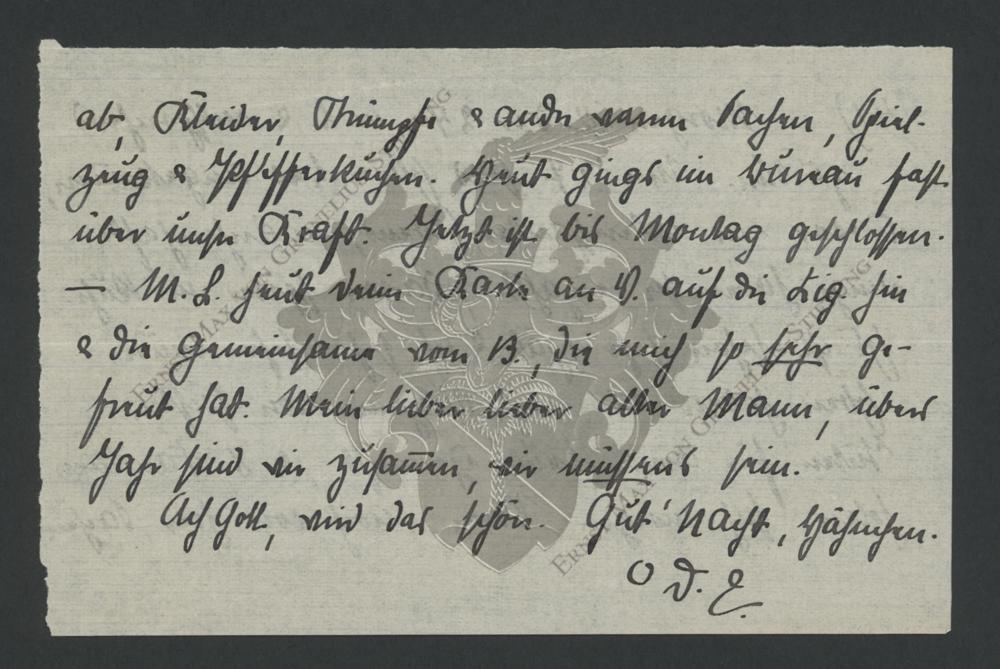 ab, Kleider, Strümpfe & andre warme Sachen, Spiel-
zeug & Pfefferkuchen. Heut gings im Bureau fast
über unsre Kraft. Jetzt ist bis Montag geschlossen.
— M. L. heut deine Karte an V. auf die Lig. hin
& die Gemeinsame vom 13., die mich so sehr ge-
freut hat. Mein lieber lieber alter Mann, übers
Jahr sind wir zusammen, wir müssens sein.
Ach Gott, wird das schön. Gut' Nacht, Hähnchen.
O D. E.
ERNST MAX VON GRUNELIUS-STIFTUNG